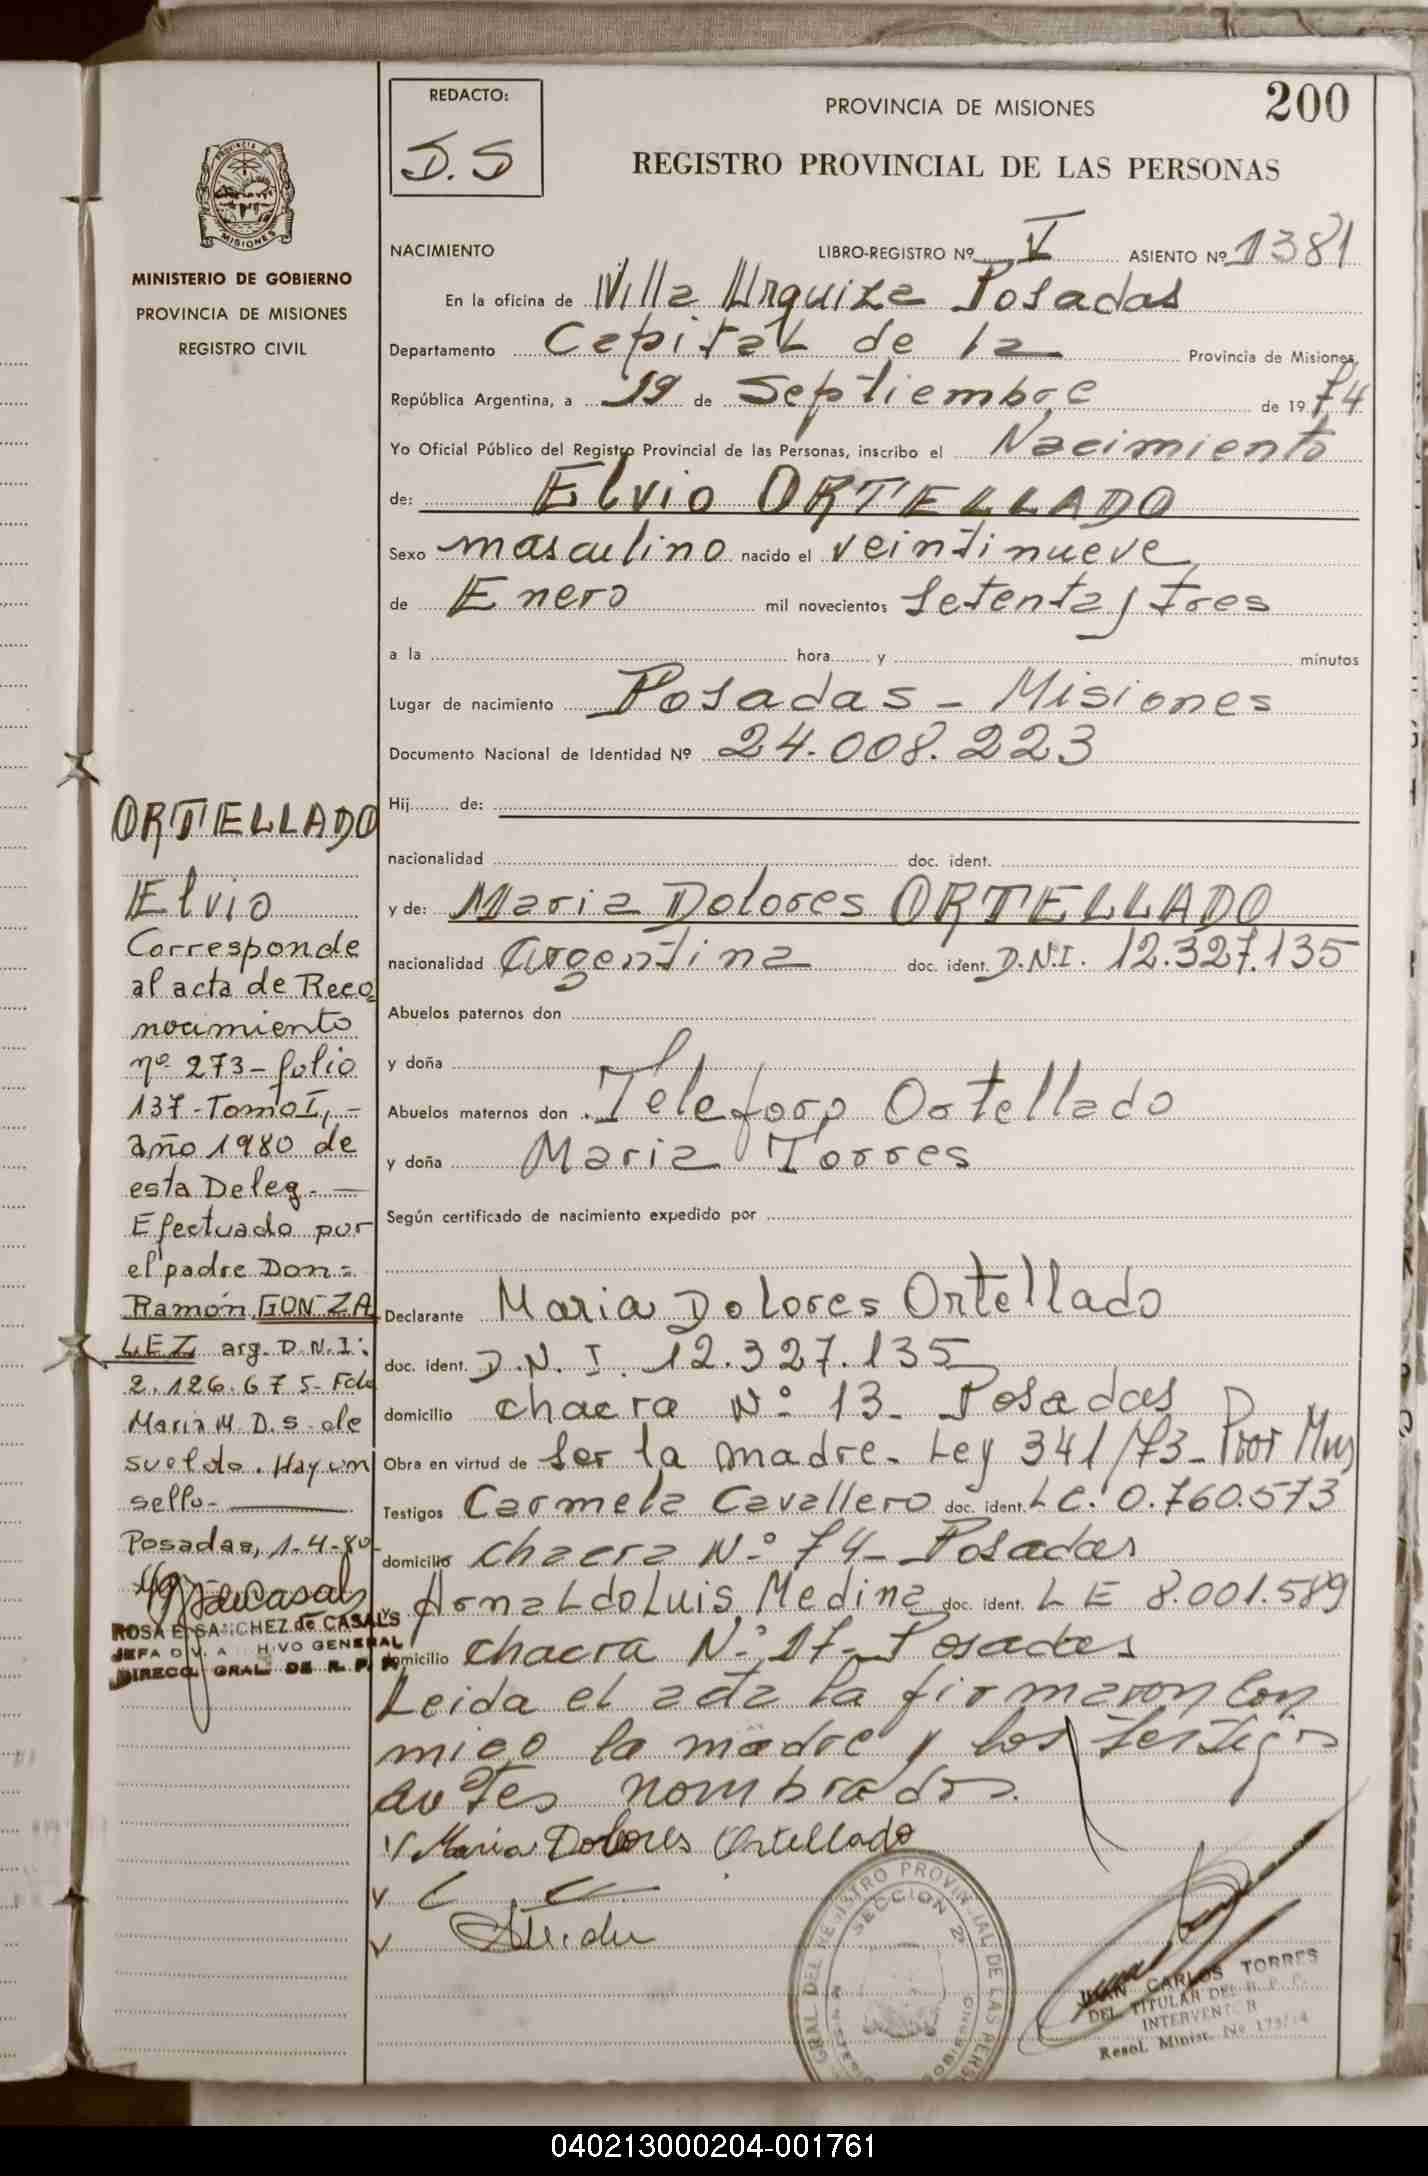 REDACTO:
D.S
PROVINCIA DE MISIONES
200
REGISTRO PROVINCIAL DE LAS PERSONAS
PROVINCIA
MISIONES
MINISTERIO DE GOBIERNO
PROVINCIA DE MISIONES
REGISTRO CIVIL
NACIMIENTO LIBRO-REGISTRO Nº V ASIENTO Nº 1381
En la oficina de Villa Urquiza Posadas
Departamento Capital de la Provincia de Misiones,
República Argentina, a 19 de Septiembre de 1974
Yo Oficial Público del Registro Provincial de las Personas, inscribo el Nacimiento
de: Elvio ORTELLADO
Sexo masculino nacido el veintinueve
de Enero mil novecientos setenta y tres
a la hora y minutos
Lugar de nacimiento Posadas - Misiones
Documento Nacional de Identidad Nº 24.008.223
Hij de:
nacionalidad doc. ident.
y de: Maria Dolores ORTELLADO
nacionalidad Argentina doc. ident. D.N.I. 12.327.135
Abuelos paternos don
y doña
Abuelos maternos don Teleforo Ortellado
y doña Maria Torres
Según certificado de nacimiento expedido por
Declarante Maria Dolores Ortellado
doc. ident. D.N.I. 12.327.135
domicilio chacra Nº 13 - Posadas
Obra en virtud de ser la madre - Ley 341/73 -
Testigos Carmela Cavallero doc. ident. L C. 0.760.573
domicilio chacra Nº 74 - Posadas
Arnaldo Luis Medina doc. ident. L E 8.001.589
domicilio chacra Nº 17 - Posadas
Leida el acta la firmaron con
migo la madre y los testigos
antes nombrados.
Maria Dolores Ortellado
ORTELLADO
Elvio
Corresponde
al acta de Reco
nocimiento
nº 273 - folio
137 - Tomo I, -
año 1980 de
esta Deleg. -
Efectuado por
el padre Don =
Ramón GONZA
LEZ arg. D.N.I:
2.126.675 - Fdo
Maria M. D. S. de
sueldo. Hay un
sello -
Posadas, 1-4-80
ROSA E. SANCHEZ de CASALS
JEFA DIV. ARCHIVO GENERAL
DIRECC. GRAL. DE R. P. P.
GRAL DEL REGISTRO PROVINCIAL DE LAS PERS
SECCION 2ª
JUAN CARLOS TORRES
DEL TITULAR DEL R. P. P.
INTERVENTOR
Resol. Minist. Nº 173/74
040213000204-001761